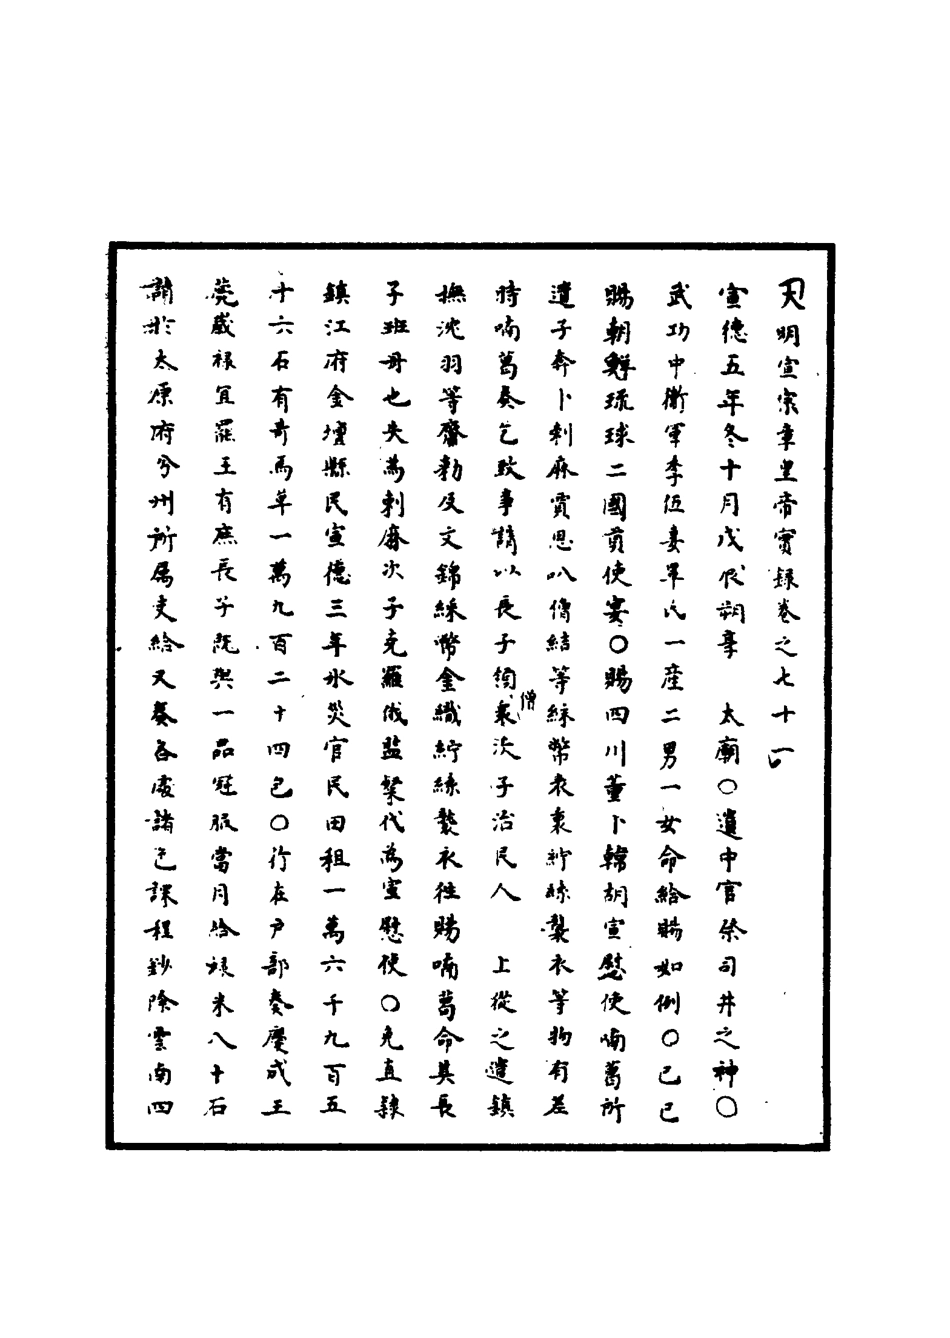 大明宣宗章皇帝實録卷之七十一
宣德五年冬十月戊辰朔享　太廟○遣中官祭司井之神○
武功中衛軍李伍妻單氏一産二男一女命給賜如例○己巳
賜朝鮮琉球二國貢使宴○賜四川董卜韓胡宣慰使喃葛所
遣子奔卜剌麻賞思八僧結等綵幣表裏紵絲襲衣等物有差
時喃葛奏乞致事請以長子領衆僧次子治民人　上從之遣鎮
撫沈羽等齎勑及文錦綵幣金織紵絲襲衣往賜喃葛命其長
子班丹也失為剌麻次子克羅俄監粲代為宣慰使○免直隸
鎮江府金壇縣民宣德三年水災官民田租一萬六千九百五
十六石有奇馬草一萬九百二十四包○行在户部奏慶成王
薨歲禄宜罷王有庶長子既與一品冠服當月給禄米八十石
請於太原府汾州所屬支給又奏各處諸色課程鈔除雲南四